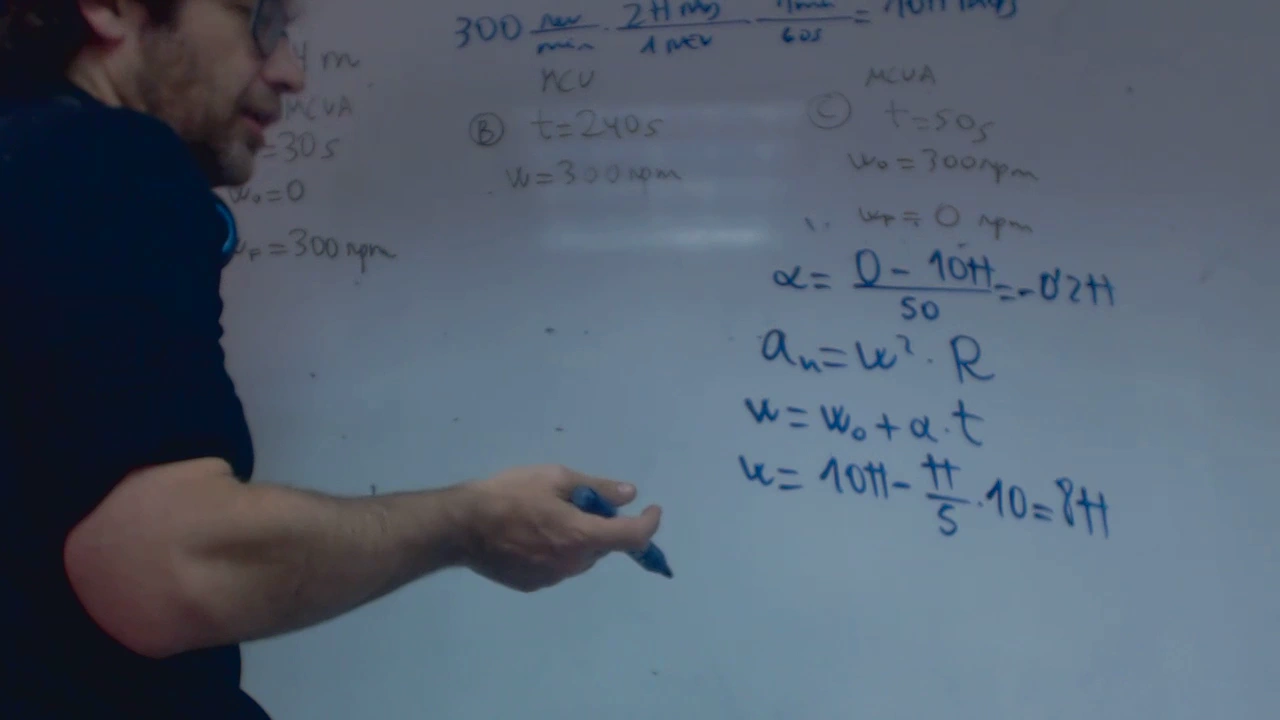 300 rev/min · 2π rad/1 rev · 1min/60s = 10π rad/s
4 m
MCUA
=30s
w₀=0
w_F=300rpm
MCU
B t=240s
w=300rpm
MCUA
C t=50s
w₀=300rpm
w_F=0 rpm
α= 0-10π/50 =-0'2π
aₙ=w²·R
w=w₀+α·t
w=10π-π/5·10=8π